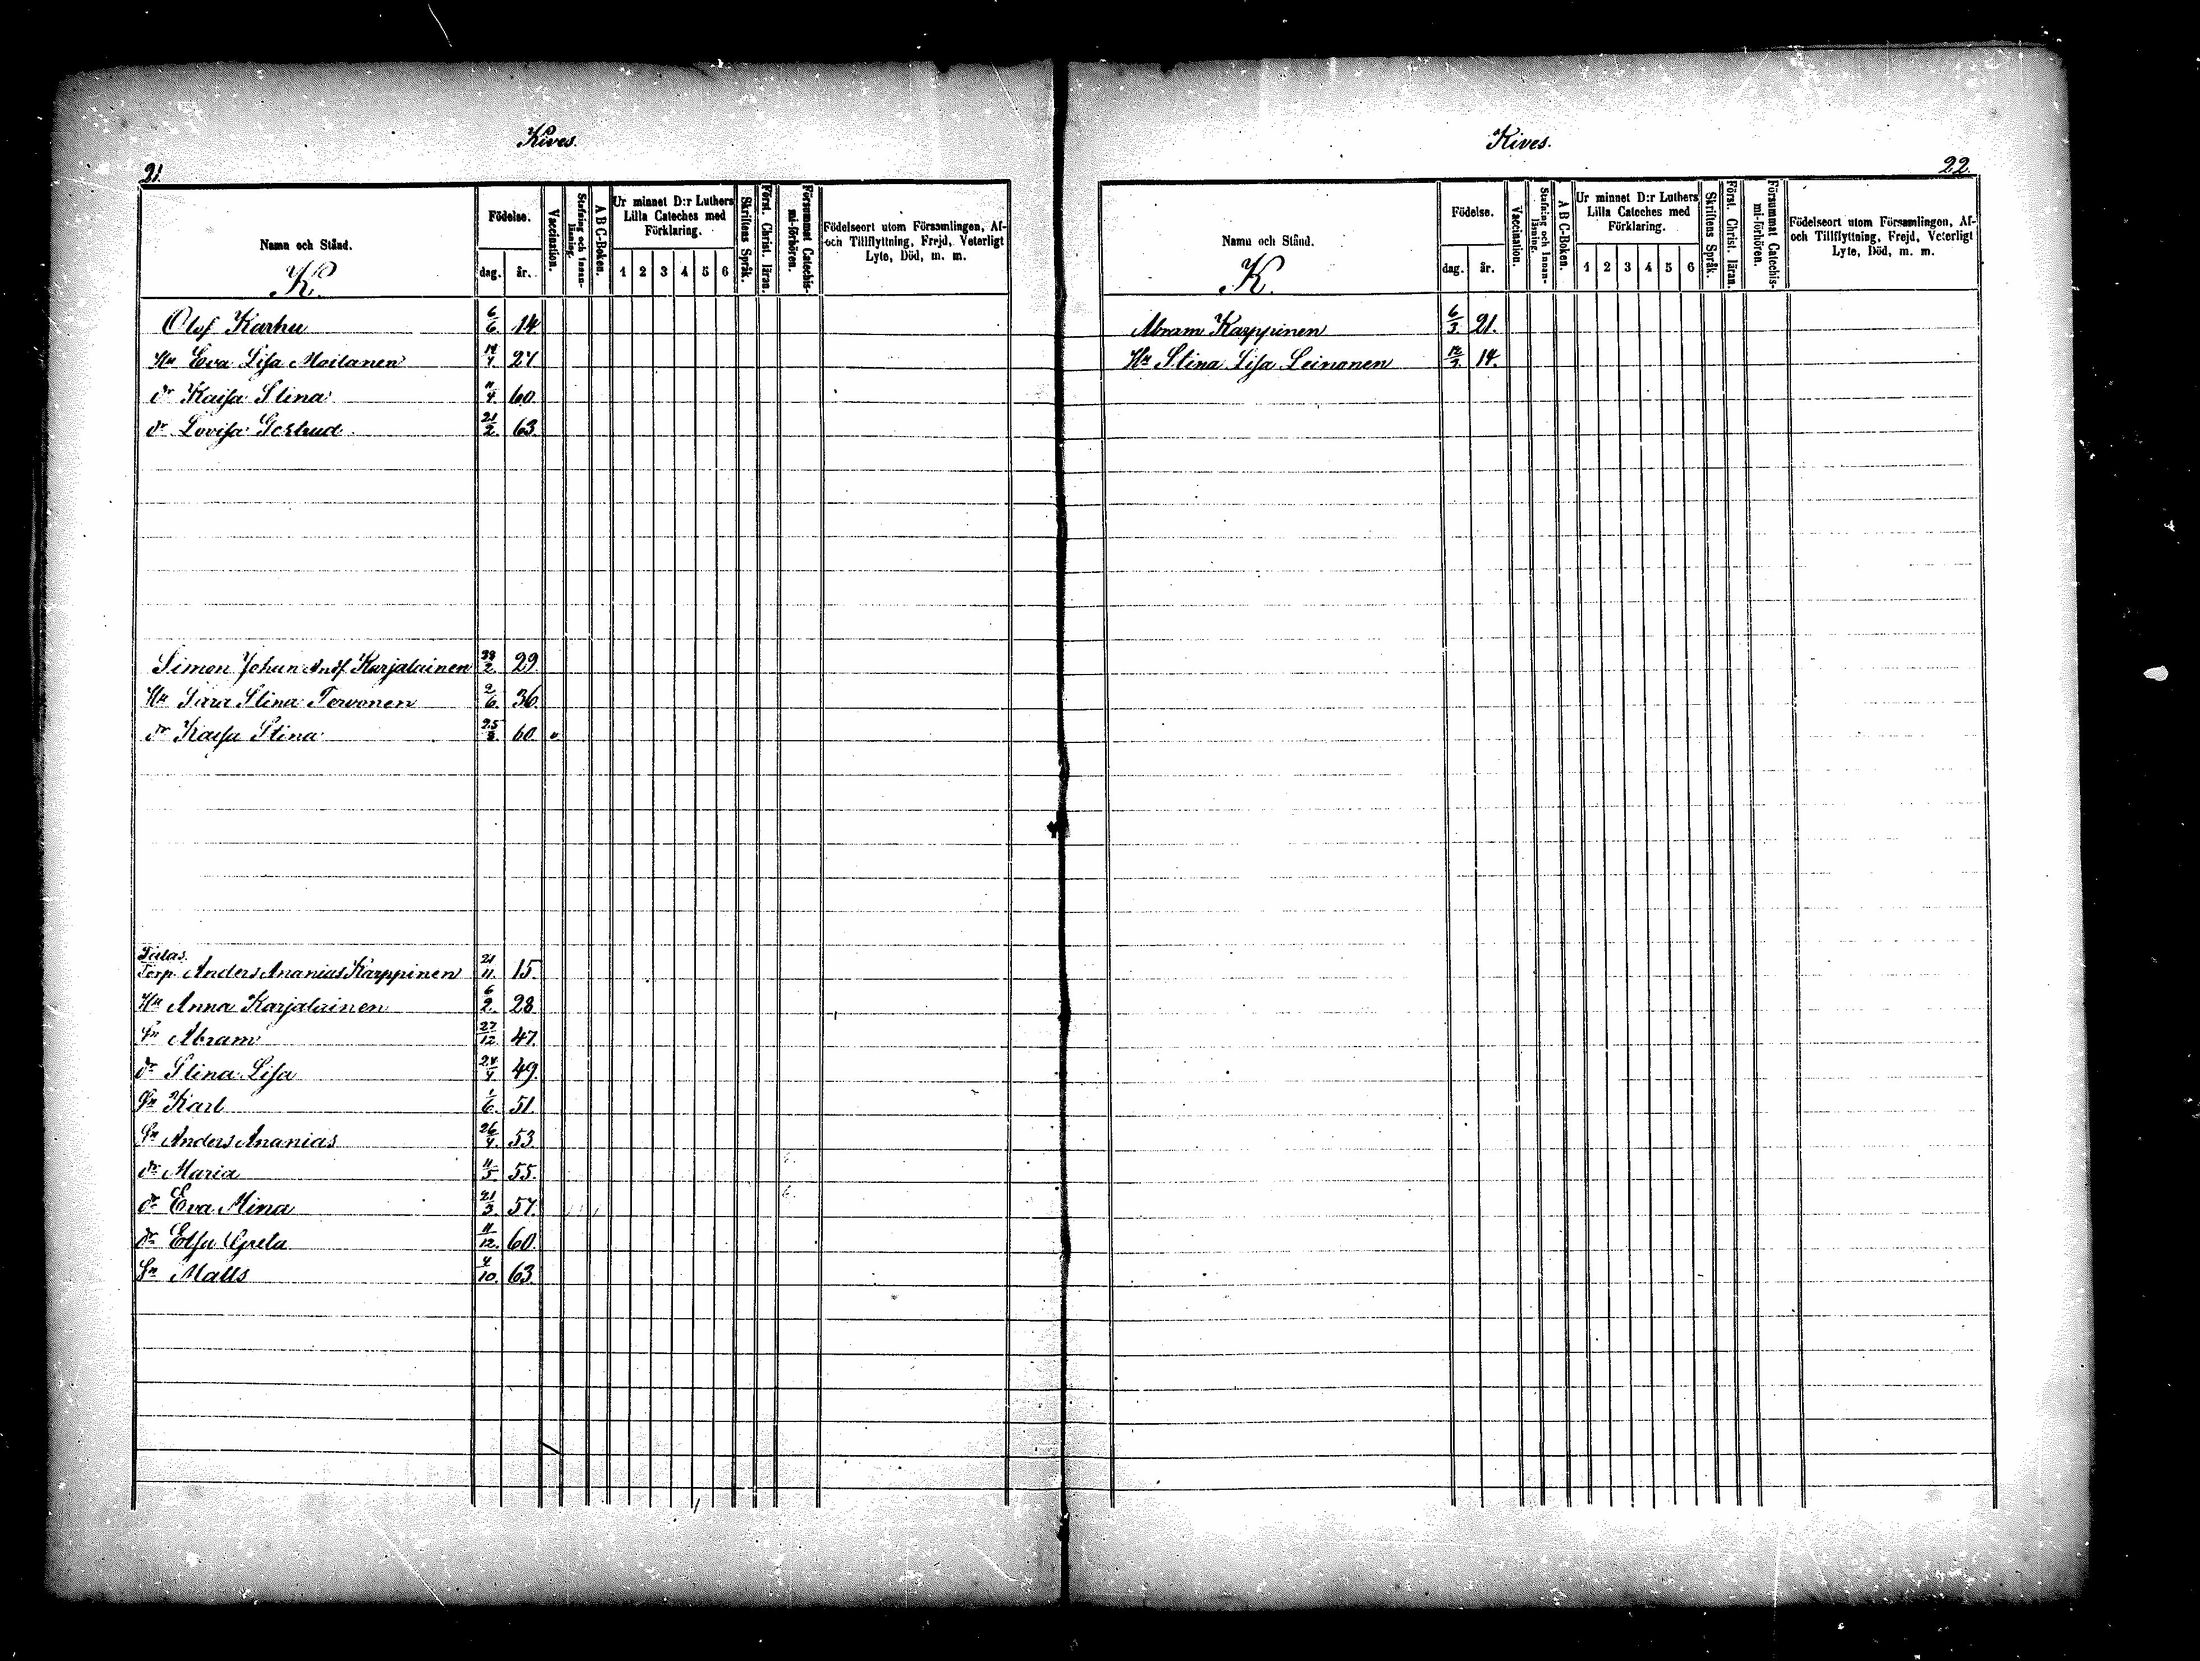 Kives.
21.
Namn och Stånd.
K.
Födelse.
dag. år.
Vaccination.
Stafning och Innan-
läsning.
A B C-Boken.
Ur minnet D:r Luthers
Lilla Cateches med
Förklaring.
1 2 3 4 5 6
Skriftens Språk.
Först. Christ. läran.
Försummat Catechis-
mi-förhören.
Födelseort utom Församlingen, Af-
och Tillflyttning, Frejd, Veterligt
Lyte, Död, m. m.
Olof Karhu 6/6. 14
Hu Eva Lisa Moilanen 27
dr Kaisa Stina 11/4. 60.
dr Lovisa Gertrud 21/2. 63.
Simon Johan Andf. Karjalainen 29
Hu Sara Stina Tervonen 2/6. 36.
dr Kaisa Stina 60.
Torp. Anders Ananias Karppinen 21/11. 15.
Hu Anna Karjalainen 6/2. 28
Sn Abram 27/12. 47.
dr Stina Lisa 24/4 49.
Sn Karl 1/6. 51.
Sn Anders Ananias 26/4. 53.
dr Maria 11/5. 55.
dr Eva Mina 21/3. 57.
dr Elsa Greta 11/12. 60.
Sn Matts 4/10. 63
Kives.
22.
Namn och Stånd.
K.
Födelse.
dag. år.
Vaccination.
Stafning och Innan-
läsning.
A B C-Boken.
Ur minnet D:r Luthers
Lilla Cateches med
Förklaring.
1 2 3 4 5 6
Skriftens Språk.
Först. Christ. läran.
Försummat Catechis-
mi-förhören.
Födelseort utom Församlingen, Af-
och Tillflyttning, Frejd, Veterligt
Lyte, Död, m. m.
Abram Karppinen 6/3. 21.
Hu Stina Lisa Leinonen 14.